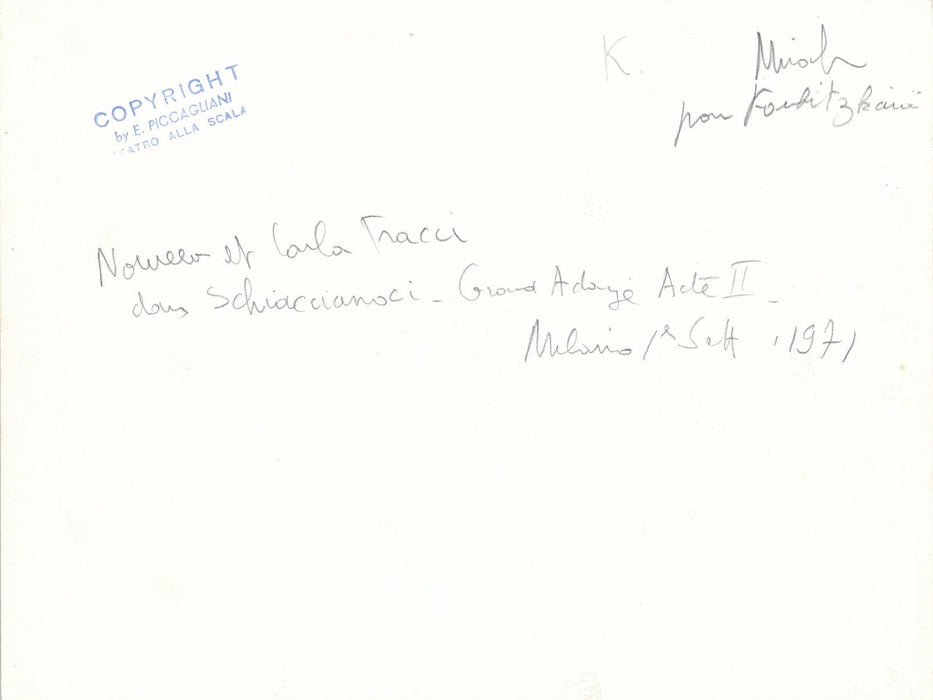 COPYRIGHT
by E. PICCAGLIANI
TEATRO ALLA SCALA
K.
pour
et Carla Fracci
dans Schiaccianoci - Grand Adage Acte II -
Milano 1º Sett. 1971